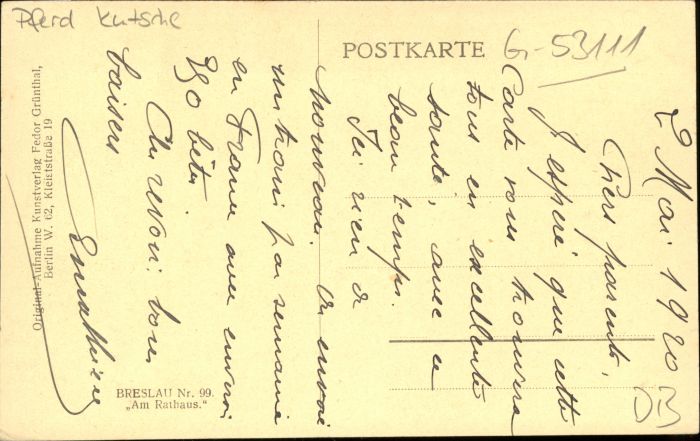 Pferd Kutsche
POSTKARTE
G-53111
2 Mai 1920
Chers parents,
J'espère que cette
Carte vous trouvera
tous en excellente
santé, avec ce
beau temps.
Ici rien de
nouveau. On envoie
un train par semaine
en France avec environ
250 bêtes.
Au revoir. bons
baisers
Original-Aufnahme Kunstverlag Fedor Grünthal,
Berlin W. 62, Kleiststraße 19
BRESLAU Nr. 99.
„Am Rathaus."
DB